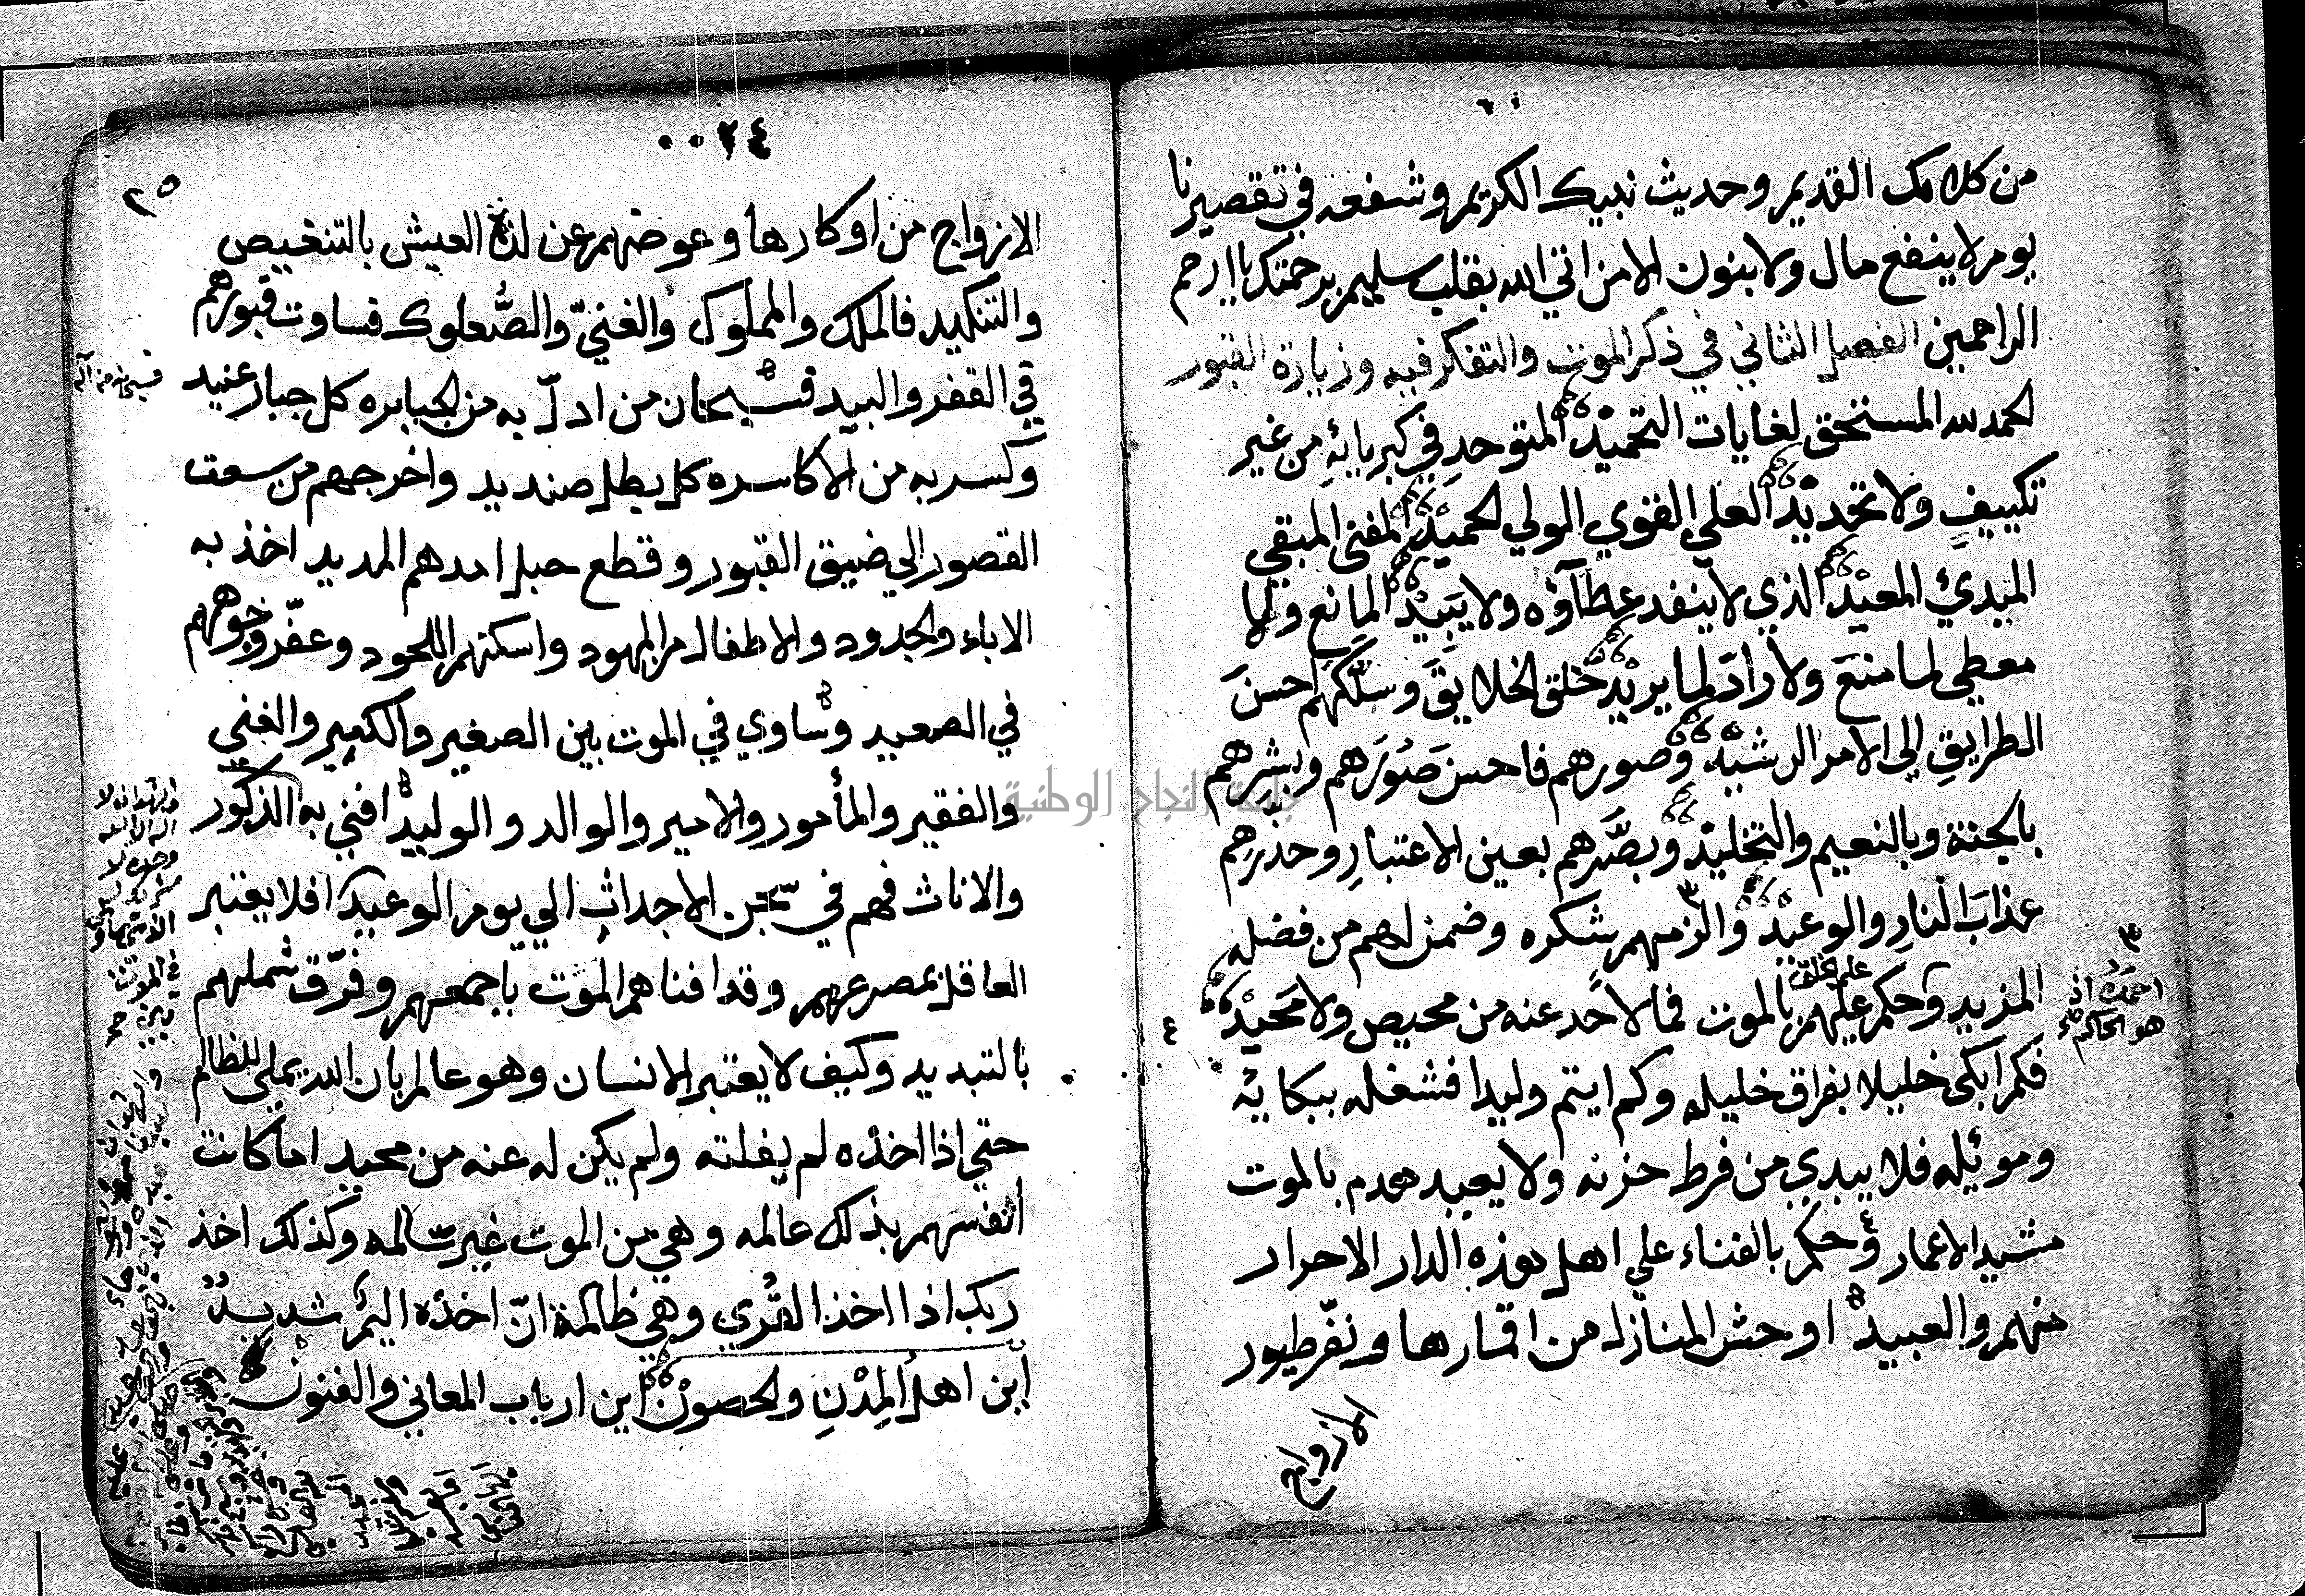 من كلامك القديم وحديث نبيك الكريم وشفعه في تقصيرنا
يوم لا ينفع مال ولا بنون الا من اتي الله بقلب سليم برحمتك يا ارحم
الراحمين الفصل الثاني في ذكر الموت والتفكر فيه وزيارة القبور
الحمد لله المستحق لغايات التحميد المتوحد في كبريائه من غير
تكييف ولا تحديد العلي القوي الولي الحميد المفني المبقي
المبدئ المعيد الذي لا ينفد عطاؤه ولا يبيد المانع ولا
معطي لما منع ولا راد لما يريد خلق الخلايق وسلكهم احسن
الطرايق الي الامر الرشيد وصورهم فاحسن صورهم وبشرهم
بالجنة وبالنعيم والتخليد وبصرهم بعين الاعتبار وحذرهم
عذاب النار والوعيد والزمهم شكره وضمن لهم من فضله
المزيد وحكم عليهم بالموت فما لاحد عنه من محيص ولا محيد
علي خلقه
احمده اذ
هو الحاكم
فكم ابكي خليلا بفراق خليله وكم ايتم وليدا فشغله ببكايه
وموئله فلا يبدي من فرط حزنه ولا يعيد هدم بالموت
مشيد الاعمار وحكم بالفناء علي اهل هذه الدار الاحرار
منهم والعبيد اوحش المنازل من اقمارها ونفر طيور
الازواج
٠٠٢٤
٢٥
الازواج من اوكارها وعوضهم عن لذة العيش بالتنغيص
والتنكيد فالملك والمملوك والغني والصعلوك تساوت قبورهم
في القفر والبيد فسبحان من اذل به من الجبابره كل جبار عنيد
وكسر به من الاكاسره كل بطل صنديد واخرجهم من سعت
القصور الي ضيق القبور وقطع حبل امدهم المديد اخذ به
الاباء والجدود والاطفال من المهود واسكنهم اللحود وعفر وجوههم
في الصعيد وساوي في الموت بين الصغير والكبير والغني
والفقير والمأمور والامير والوالد والوليد افني به الذكور
والاناث فهم في سجن الاجداث الي يوم الوعيد افلا يعتبر
العاقل بمصرعهم وقد افناهم الموت باجمعهم وفرق شملهم
بالتبديد وكيف لا يعتبر الانسان وهو عالم بان الله يملي للظالم
حتي اذا اخذه لم يفلته ولم يكن له عنه من محيد اما كانت
انفسهم بذلك عالمه وهي من الموت غير سالمه وكذلك اخذ
ربك اذا اخذ القري وهي ظالمة ان اخذه اليم شديد
اين اهل المدن والحصون اين ارباب المعاني والفنون
جامعة النجاح الوطنية